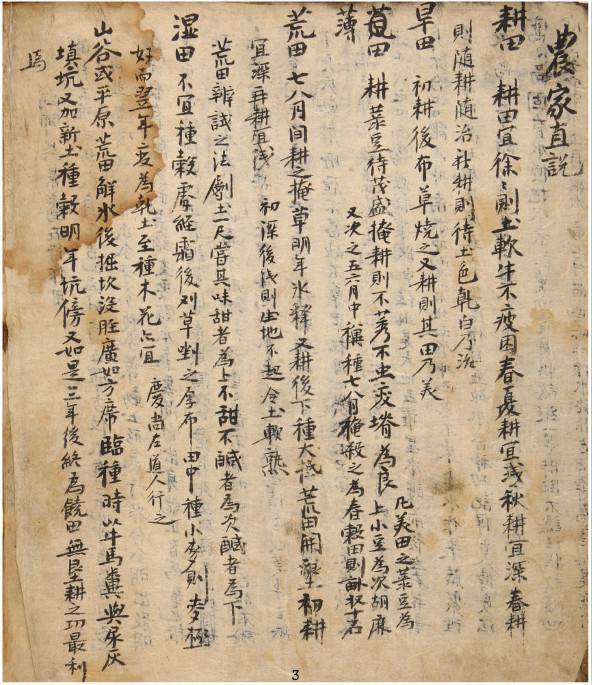 農家直說
耕田 耕田宜徐〻則土軟牛不疲困春夏耕宜淺秋耕宜深春耕
則隨耕隨治秋耕則待土色乹白乃治
旱田 初耕後布草燒之又耕則其田乃美
薄田 耕菉豆待茂盛掩耕則不莠不虫変塉為良 凡美田之菉豆為
上小豆為次胡麻
又次之五六月中穊種七八月掩殺之為春穀田則畝収十石
荒田 七八月間耕之掩草明年氷釋又耕後下種大抵荒田開墾初耕
宜深再耕宜淺 初深後淺則生地不起令土軟熟
荒田辨試之法劚土一尺嘗其味甜者為上不甜不鹹者為次鹹者為下
湿田 不宜種穀處経霜後刈草剉之厚布田中種小麥則麥極
好而翌年変為乹土至種木花亦宜 慶尙左道人行之
山谷或平原荒田觧氷後掘坎沒脛廣如方席臨種時以牛馬糞與尿灰
填坑又加新土種穀明年坑傍又如是三年後終為饒田無墾耕之功最利
焉
3